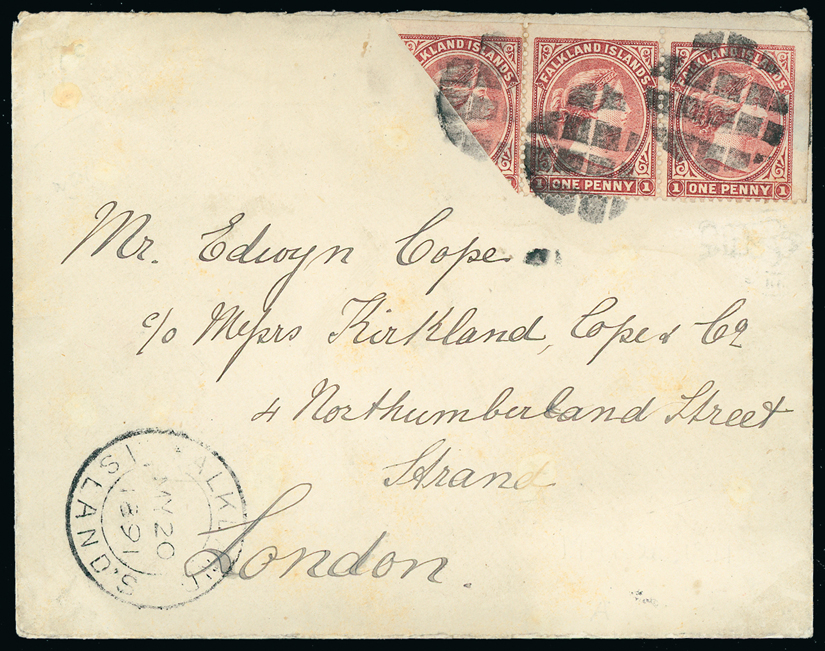 FALKLAND ISLANDS FALKLAND ISLANDS FALKLAND ISLANDS
1 ONE PENNY 1 1 ONE PENNY 1
Mr. Edwyn Cope
c/o Messrs Kirkland, Cope & Co
4 Northumberland Street
Strand
London.
FALKLAND ISLANDS.
MY 20
1891